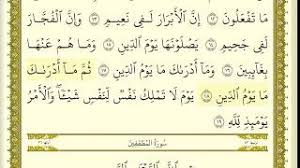 مَا تَفْعَلُونَ ﴿١٢﴾ إِنَّ ٱلْأَبْرَارَ لَفِى نَعِيمٍ ﴿١٣﴾ وَإِنَّ ٱلْفُجَّارَ
لَفِى جَحِيمٍ ﴿١٤﴾ يَصْلَوْنَهَا يَوْمَ ٱلدِّينِ ﴿١٥﴾ وَمَا هُمْ عَنْهَا
بِغَآئِبِينَ ﴿١٦﴾ وَمَآ أَدْرَىٰكَ مَا يَوْمُ ٱلدِّينِ ﴿١٧﴾ ثُمَّ مَآ أَدْرَىٰكَ
مَا يَوْمُ ٱلدِّينِ ﴿١٨﴾ يَوْمَ لَا تَمْلِكُ نَفْسٌ لِّنَفْسٍ شَيْـًٔا وَٱلْأَمْرُ
يَوْمَئِذٍ لِّلَّهِ ﴿١٩﴾
سُورَةُ المُطَفِّفِينَ